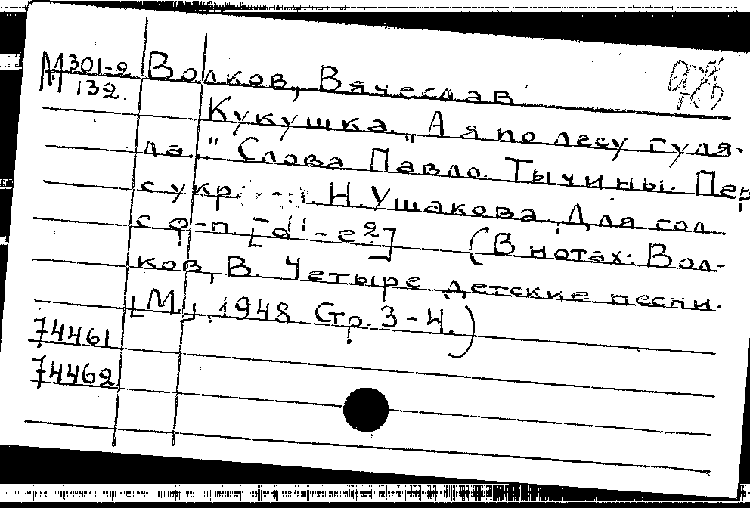 М301-2 Волков, Вячеслав
132.
Кукушка. „А я по лесу гуля-
ла.." Слова Павло Тычины. Пер
с укр. Н. Ушакова. Для сол.
с ф-п. [d¹-e²] (В нотах: Вол-
ков, В. Четыре детские песни.
[М.], 1948. Стр. 3-4.)
74461
74462